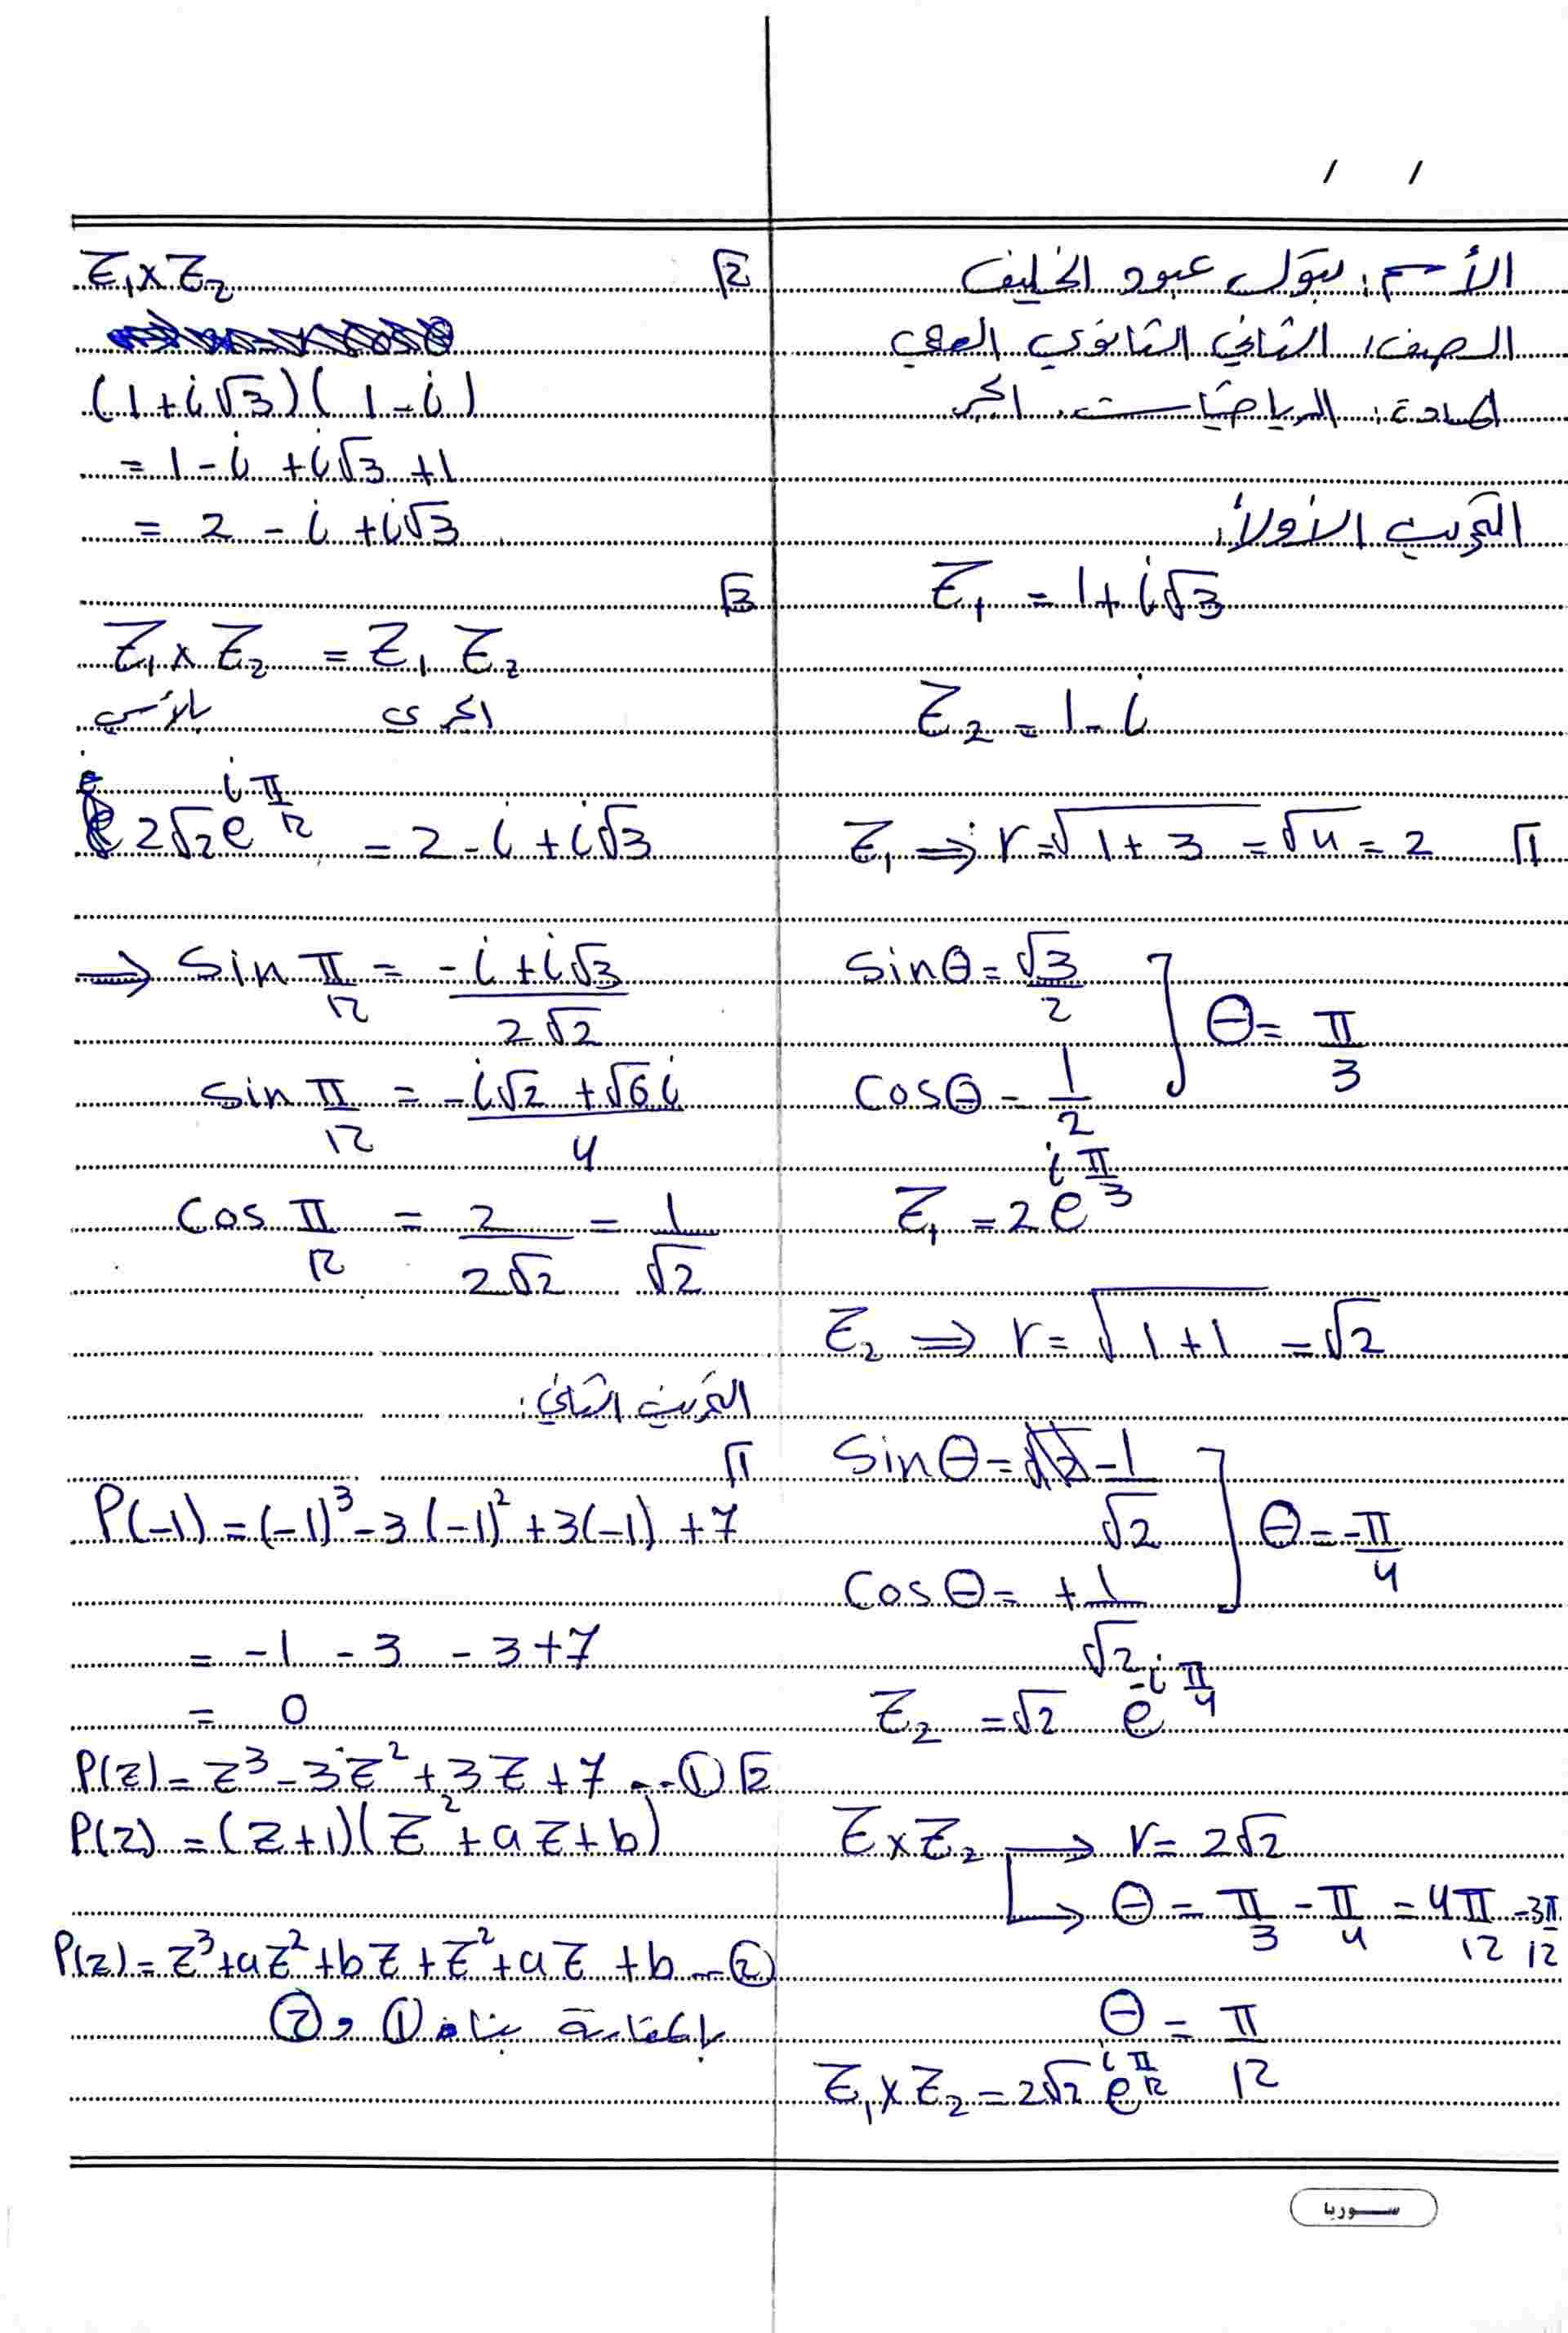 / /
الأسم: بتول عبود الخليف
الصف: الثاني الثانوي العلمي
المادة: الرياضيات. الجبر
التمرين الأولاً:
Z₁ = 1+i√3
Z₂ = 1-i
1 Z₁ ⇒ r=√(1+3) = √4 = 2
sinθ = √3/2
cosθ = 1/2
θ = π/3
Z₁ = 2e^(iπ/3)
Z₂ ⇒ r = √(1+1) = √2
sinθ = -1/√2
cosθ = +1/√2
θ = -π/4
Z₂ = √2 e^(-iπ/4)
Z×Z₂ → r = 2√2
→ θ = π/3 - π/4 = 4π/12 - 3π/12
θ = π/12
Z₁×Z₂ = 2√2 e^(iπ/12)
2 Z₁×Z₂
(1+i√3)(1-i)
= 1-i+i√3+1
= 2-i+i√3
3
Z₁×Z₂ = Z₁ Z₂
الجبري بالأسي
2√2e^(iπ/12) = 2-i+i√3
⇒ sin π/12 = (-i+i√3)/(2√2)
sin π/12 = (-i√2+√6i)/4
cos π/12 = 2/(2√2) = 1/√2
التمرين الثاني:
1
P(-1) = (-1)³-3(-1)²+3(-1)+7
= -1-3-3+7
= 0
2 P(z) = z³-3z²+3z+7 --①
P(z) = (z+1)(z²+az+b)
P(z) = z³+az²+bz+z²+az+b --②
بالمقارنة بين ① و ②
سوريا